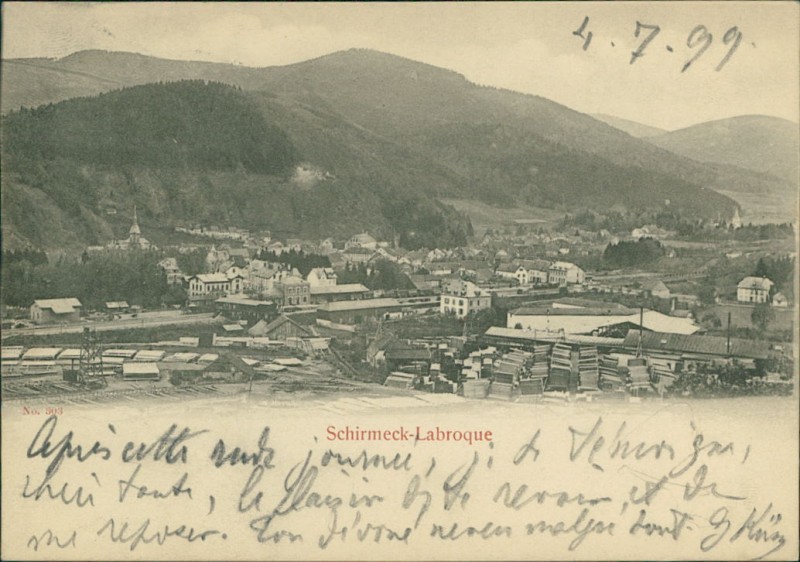 4.7.99.
No. 303
Schirmeck-Labroque
Après cette rude journée, j'
chère tante, le plaisir de te revoir et de
me reposer. Ton neveu malgré tout. G